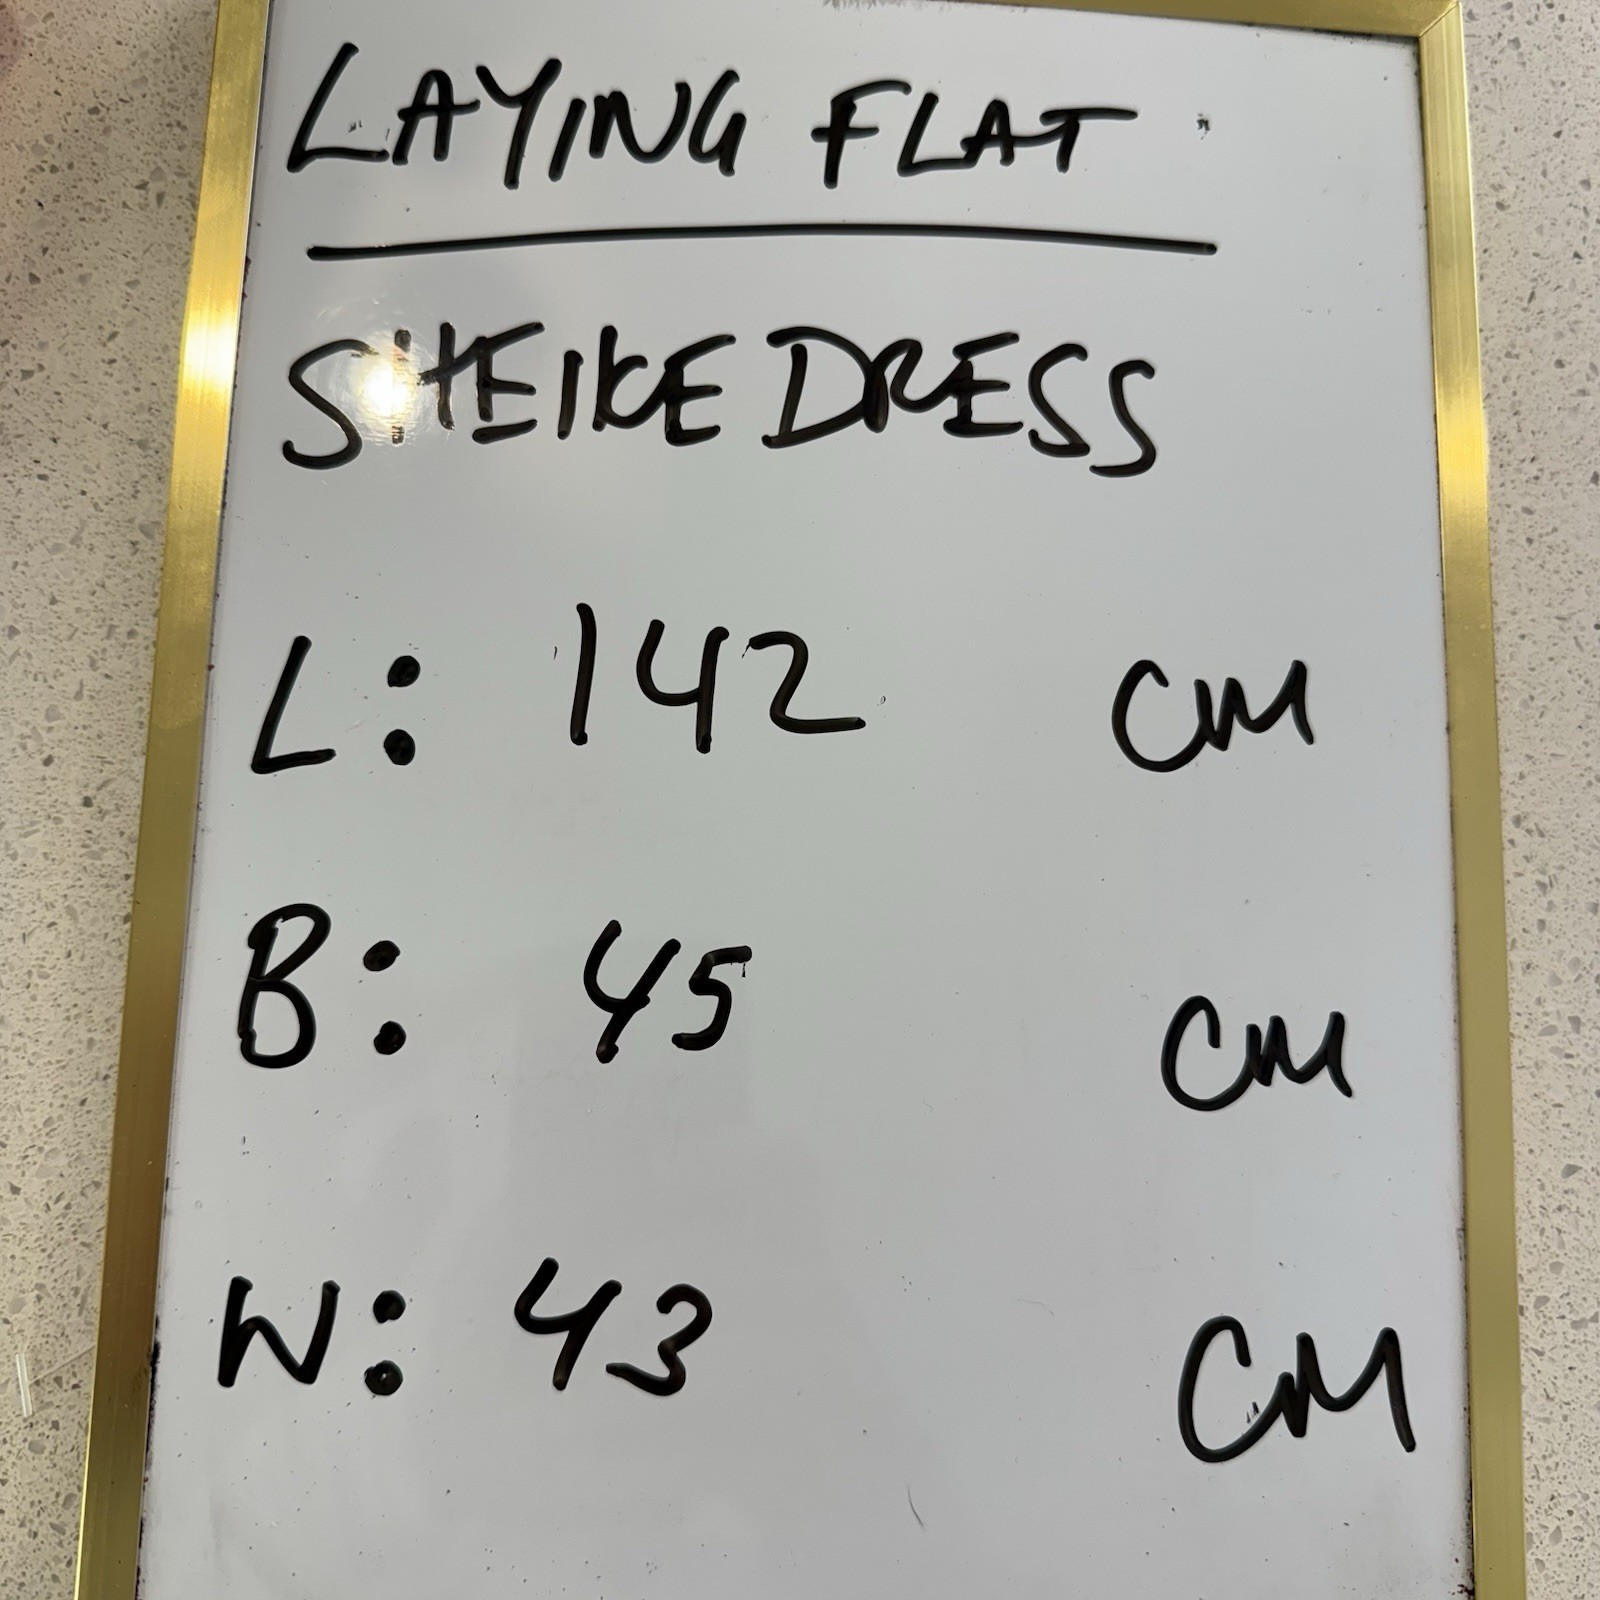 LAYING FLAT
SHEIKE DRESS
L: 142 CM
B: 45 CM
W: 43 CM